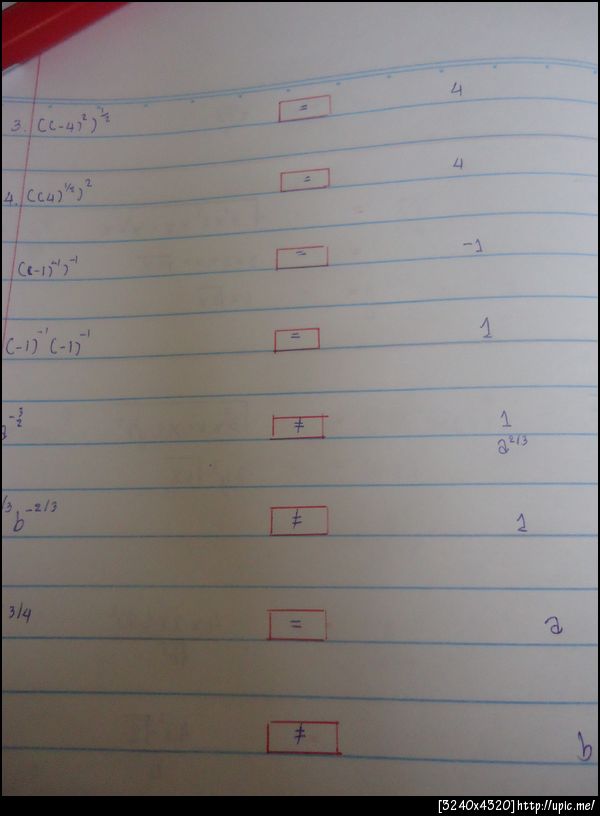 3. ((-4)²)^½ = 4
4. ((4)^1/2)² = 4
((-1)⁻¹)⁻¹ = -1
(-1)⁻¹ (-1)⁻¹ = 1
a^-3/2 ≠ 1
a^2/3
/3 b^-2/3 ≠ 1
3/4 = a
≠ b
[3240x4320]http://upic.me/